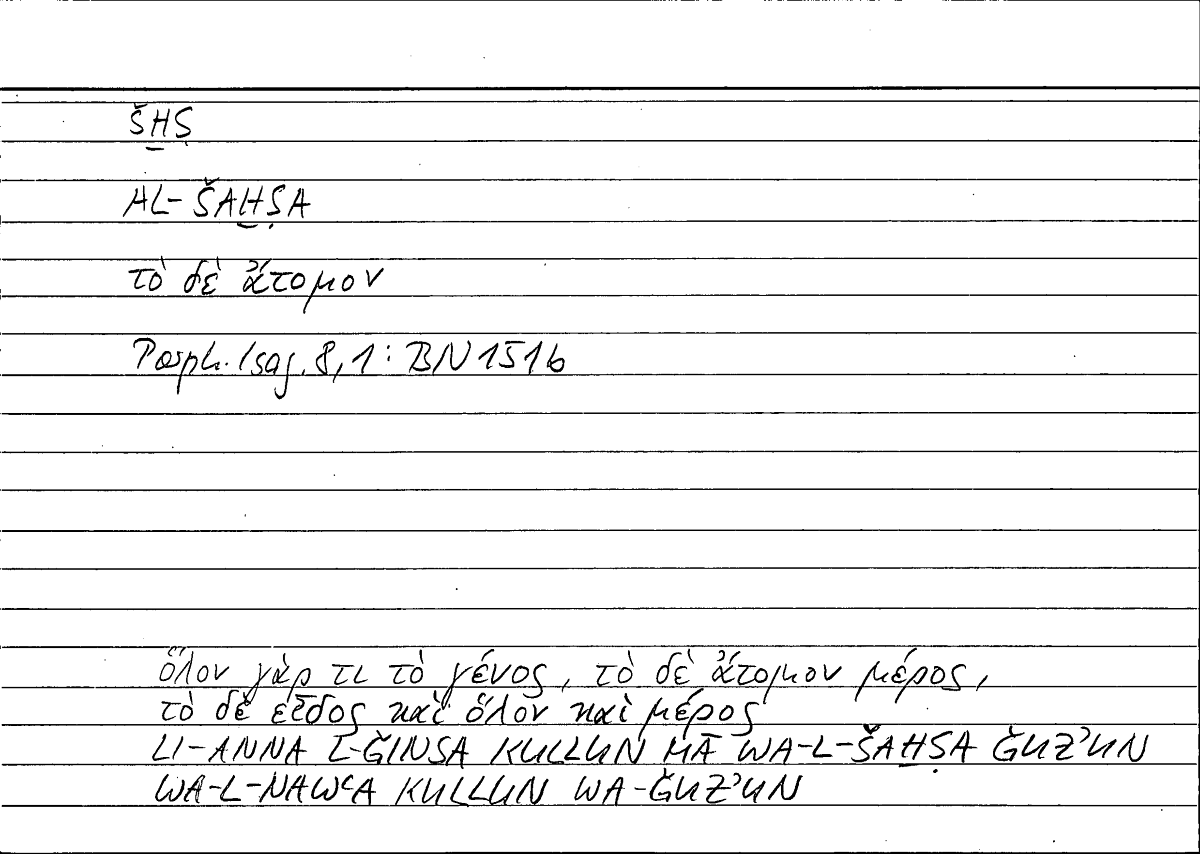 ŠH̱Ṣ
AL-ŠAH̱ṢA
τὸ δὲ ἄτομον
Porph. Isag. 8,1: BN 151b
ὅλον γάρ τι τὸ γένος, τὸ δὲ ἄτομον μέρος,
τὸ δὲ εἶδος καὶ ὅλον καὶ μέρος
LI-ANNA L-ǦINSA KULLUN MĀ WA-L-ŠAH̱ṢA ǦUZʾUN
WA-L-NAWʿA KULLUN WA-ǦUZʾUN